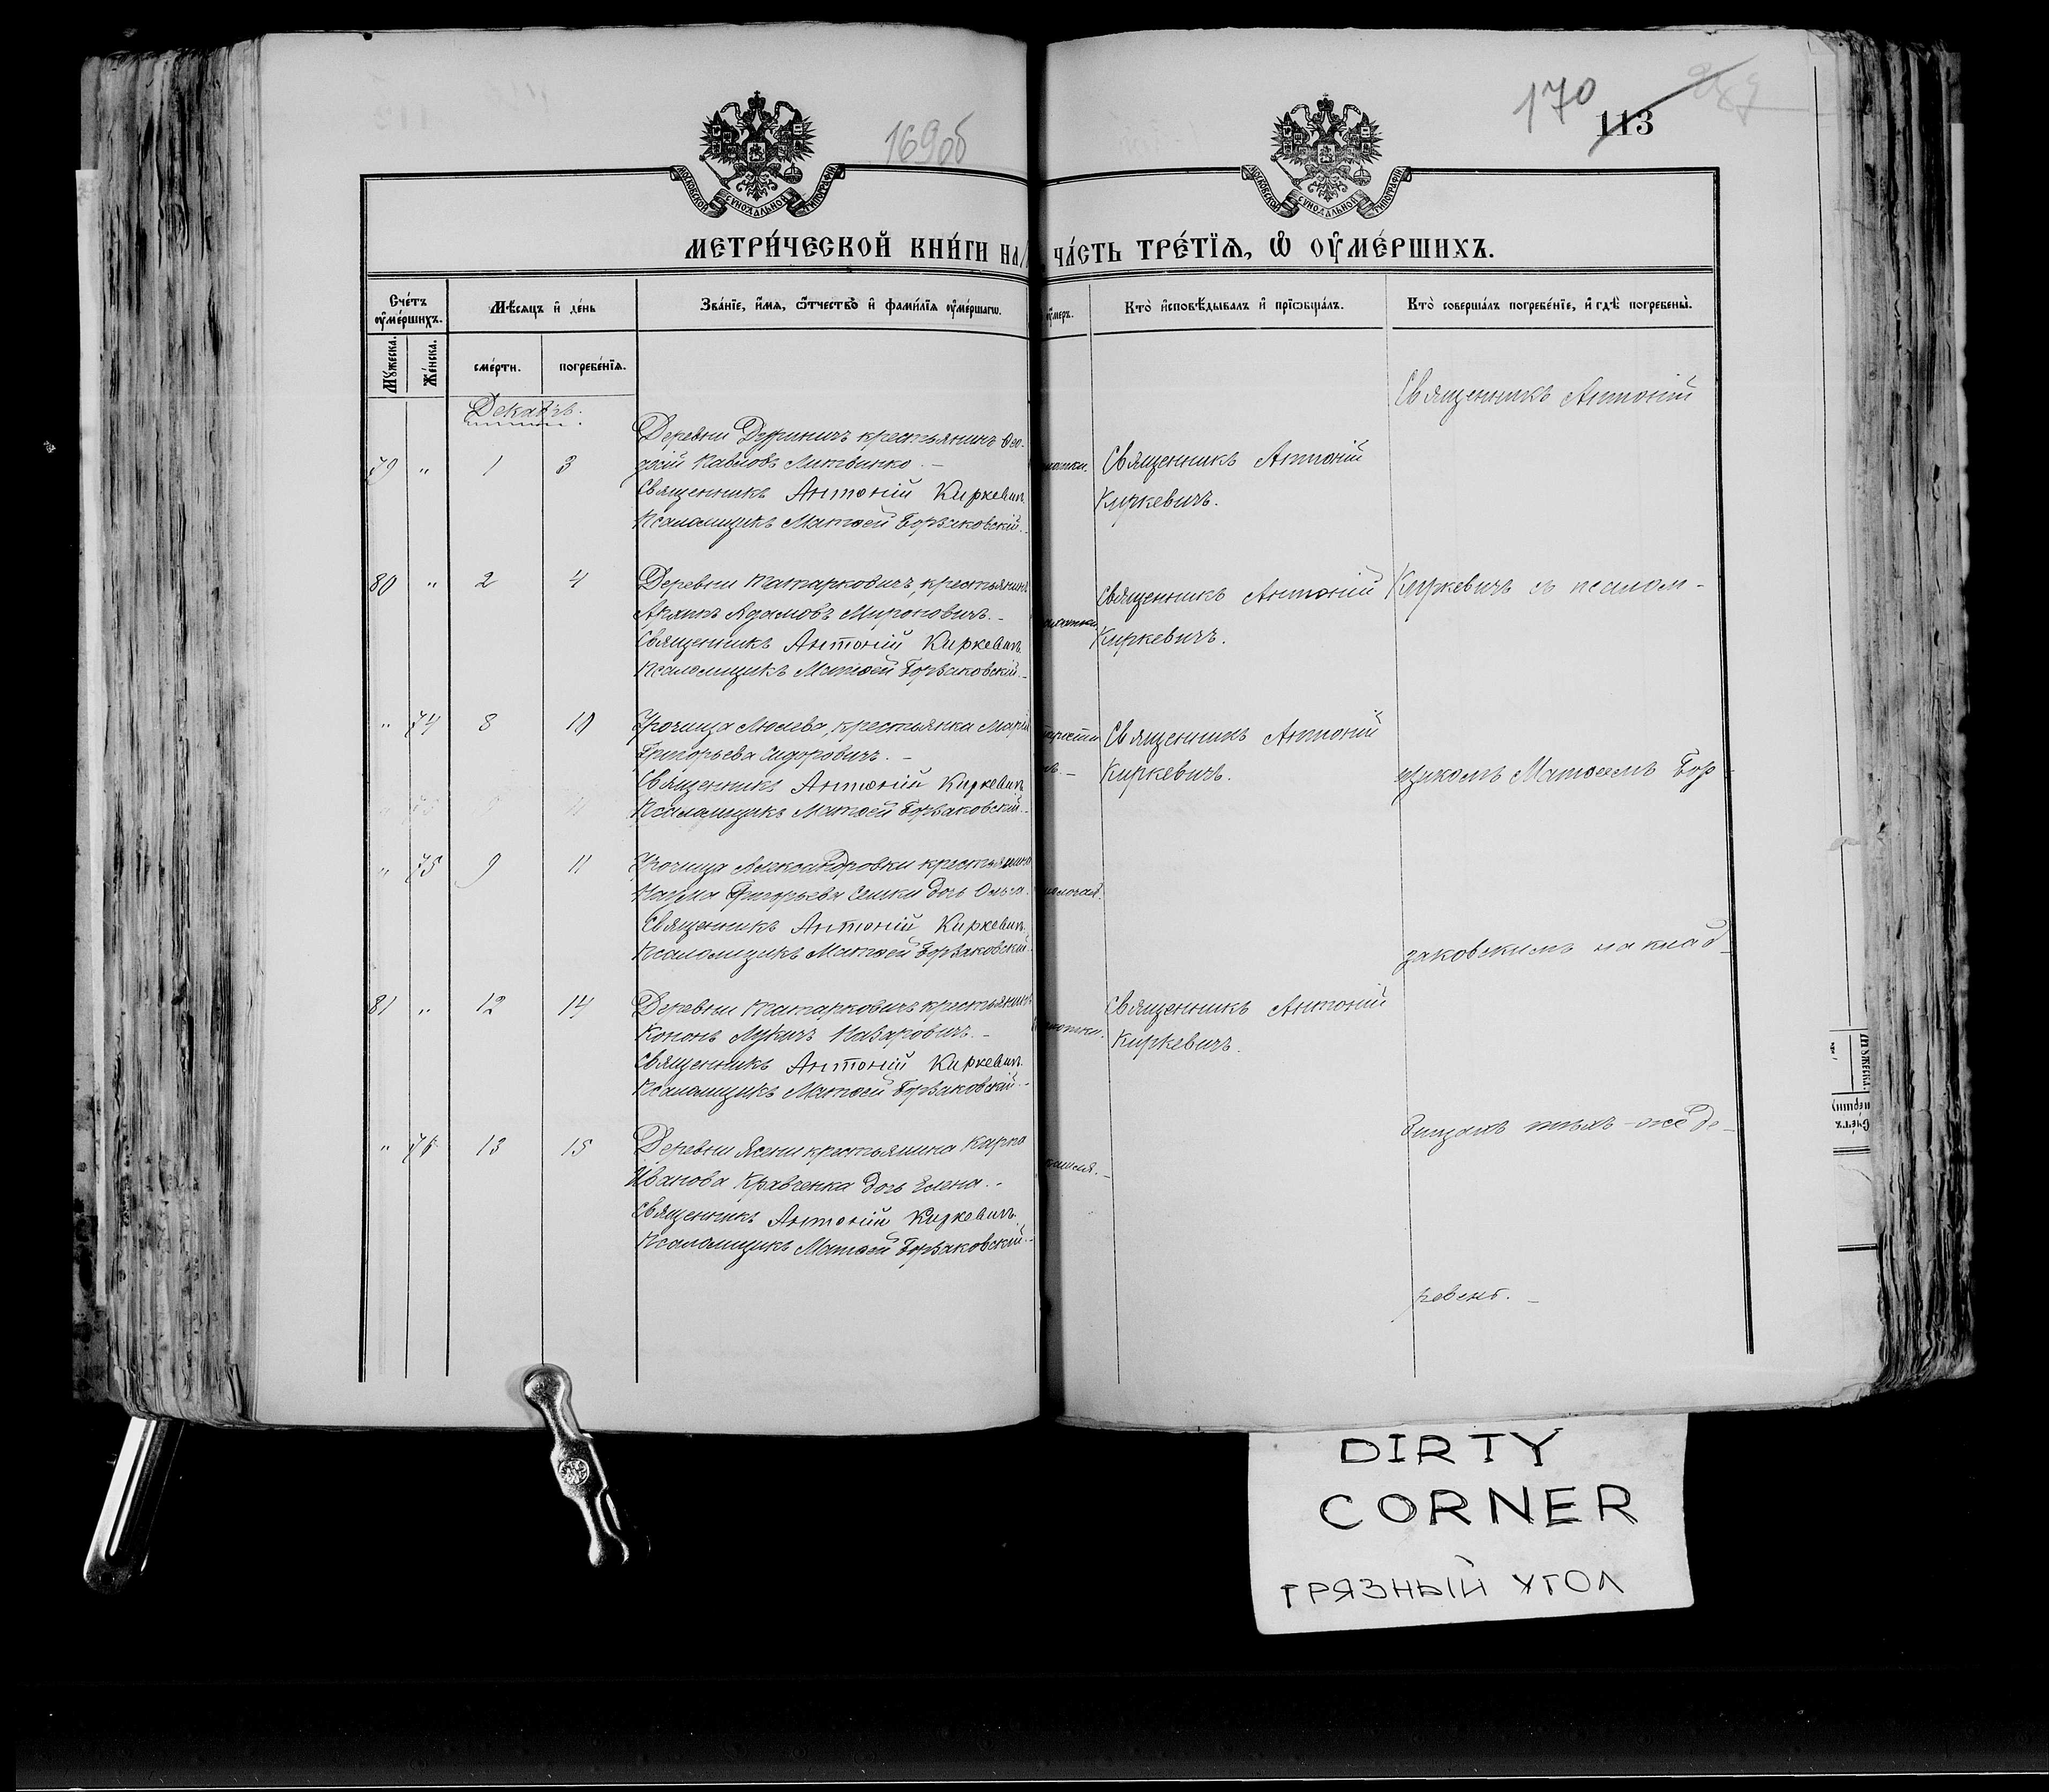 169об
170
113
МОСКОВСКОЙ СѴНОДАЛЬНОЙ ТИПОГРАФІИ
МОСКОВСКОЙ СѴНОДАЛЬНОЙ ТИПОГРАФІИ
МЕТРИ́ЧЕСКОЙ КНИ́ГИ НА
ЧА́СТЬ ТРЕ́ТІѦ, Ѡ҆ ОУ҆МЕ́РШИХЪ.
Сче́тъ оу҆ме́ршихъ.
Мѣ́сяцъ и҆ де́нь
Зва́нїе, и҆́мѧ, ѻ҆́тчество и҆ фами́лїѧ оу҆ме́ршагѡ.
оу҆меръ.
Кто̀ и҆сповѣ́дывалъ и҆ прїѡбща́лъ.
Кто̀ соверша́лъ погребе́нїе, и҆ гдѣ̀ погребены̀.
Мꙋ́жеска.
Же́нска.
сме́рти.
погребе́нїѧ.
Декабрь.
Священникъ Антоній
Деревни крестьянинъ Ѳео-
79 " 1 3 досій Павловъ Литвинко. –
Священникъ Антоній Киркевичъ
Псаломщикъ Матѳей Борзаковскій. –
Священникъ Антоній
Киркевичъ.
80 " 2 4 Деревни Татарковичъ, крестьянинъ
Адамовъ Мироновичъ. –
Священникъ Антоній Киркевичъ
Псаломщикъ Матѳей Борзаковскій. –
Священникъ Антоній
Киркевичъ.
Киркевичъ съ псалом-
" 74 8 10 Урочища крестьянка Марія
Григорьева Сидоровичъ. –
Священникъ Антоній Киркевичъ
Псаломщикъ Матѳей Борзаковскій. –
Священникъ Антоній
Киркевичъ.
щикомъ Матѳеемъ Бор-
" 75 9 11 Урочища Александровки крестьянина
Наума Григорьева дочь Ольга.
Священникъ Антоній Киркевичъ.
Псаломщикъ Матѳей Борзаковскій.
заковскимъ на клад-
81 " 12 14 Деревни Татарковичъ крестьянинъ
Кононъ Лукичъ Назаровичъ. –
Священникъ Антоній Киркевичъ.
Псаломщикъ Матѳей Борзаковскій. –
Священникъ Антоній
Киркевичъ.
бищахъ тѣхъ-же де-
" 76 13 15 Деревни Ясени крестьянина Карпа
Иванова Кравченка дочь Елена. –
Священникъ Антоній Киркевичъ.
Псаломщикъ Матѳей Борзаковскій. –
кашля. –
ревень. –
DIRTY
CORNER
ГРЯЗНЫЙ УГОЛ